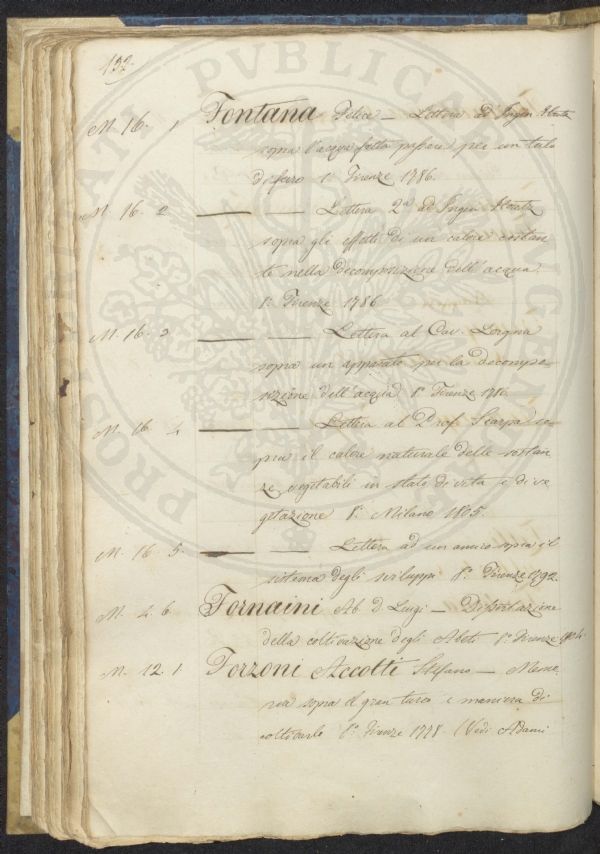 152.
M. 16. 1 Fontana Felice — Lettera ad Ingen
sopra l'acqua fatta passare per un tubo
di ferro 8° Firenze 1786.
M. 16. 2 — — Lettera 2ª ad Ingen
sopra gli effetti di un calore costan
te nella decomposizione dell'acqua.
8° Firenze 1786
M. 16. 3 — — Lettera al Cav. Lorgna
sopra un apparato per la decompo
sizione dell'acqua 8° Firenze 1786.
M. 16. 4 — — Lettera al Prof. Scarpa so
pra il calore naturale delle sostan
ze vegetabili in stato di vita e di ve
getazione 8° Milano 1805.
M. 16. 5. — — Lettera ad un amico sopra il
sistema degli sviluppi 8° Firenze 1792.
M. 4. 6 Fornaini Ab. D. Luigi — Dissertazione
della coltivazione degli Abeti 8° Firenze
M. 12. 1 Forzoni Accolti Stefano — Memo
ria sopra il gran turco e maniera di
coltivarlo 8° Firenze 1778. (Vedi Adami
PROSPERITATI PUBLICAE AUGENDAE